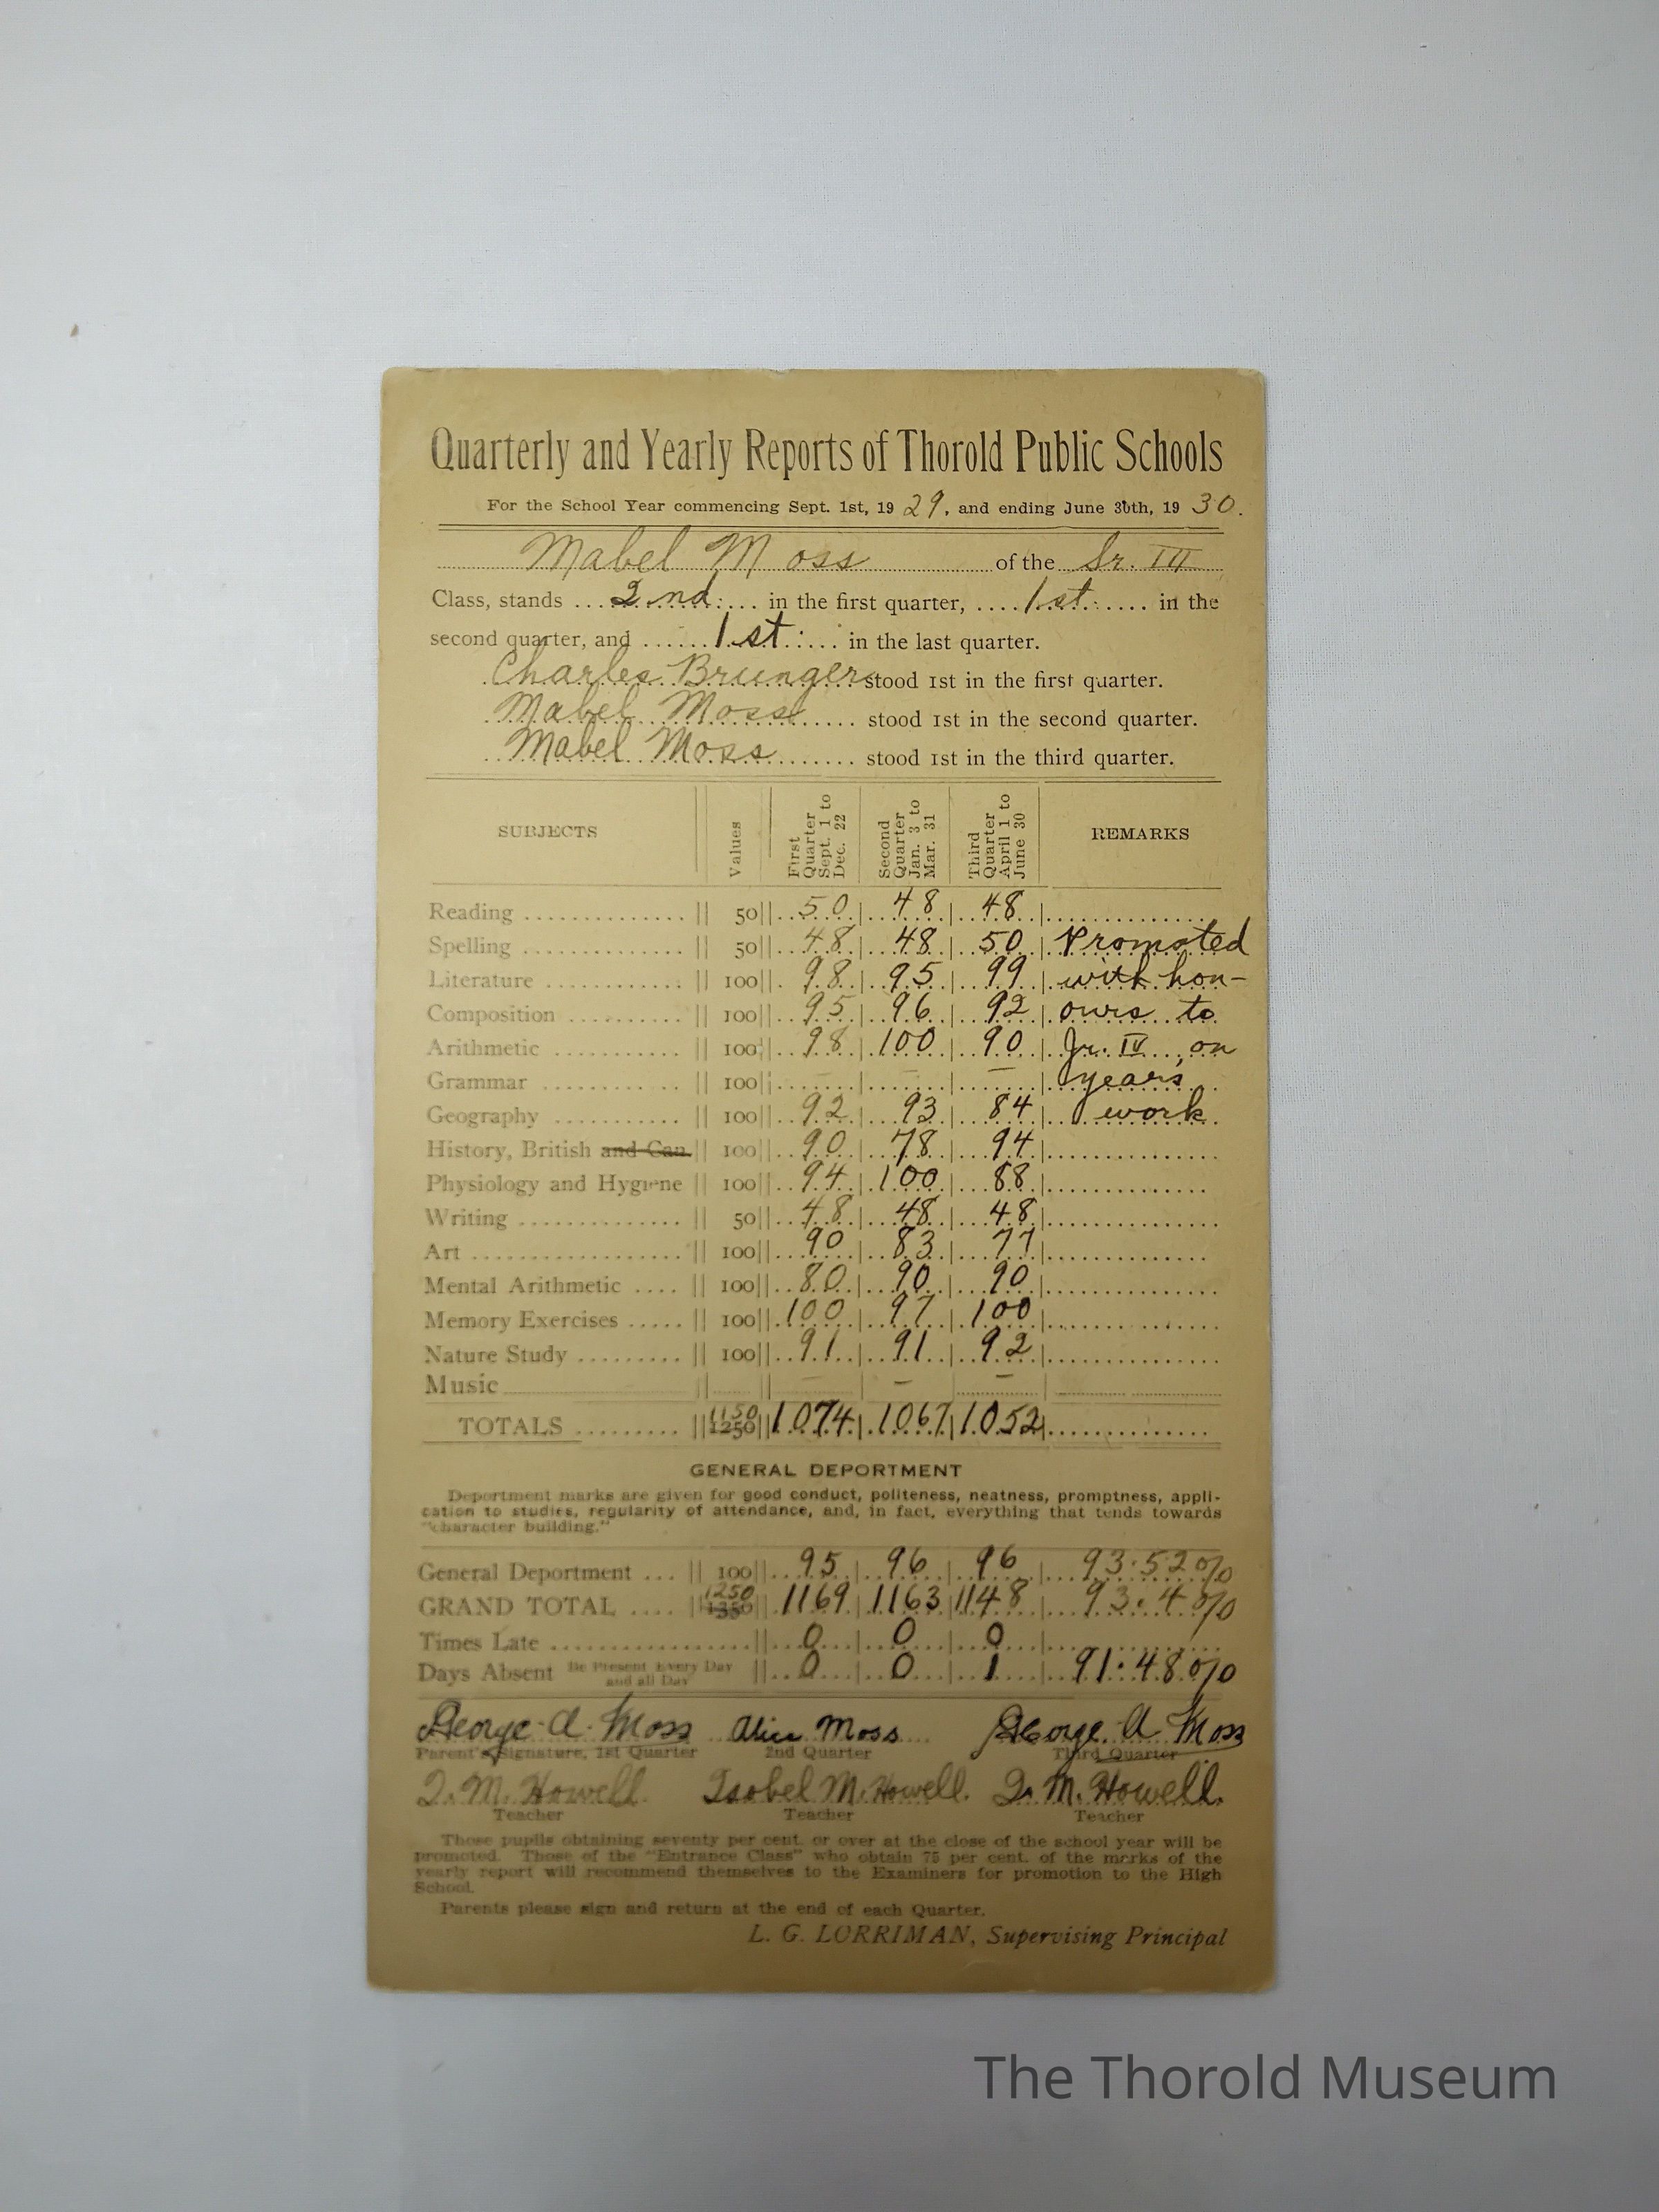 Quarterly and Yearly Reports of Thorold Public Schools
For the School Year commencing Sept. 1st, 19 29, and ending June 30th, 19 30.
Mabel Moss of the Sr. III
Class, stands 2nd. in the first quarter, 1st. in the
second quarter, and 1st. in the last quarter.
Charles Brunger stood 1st in the first quarter.
Mabel Moss stood 1st in the second quarter.
Mabel Moss stood 1st in the third quarter.
SUBJECTS Values First Quarter Sept. 1 to Dec. 22 Second Quarter Jan. 3 to Mar. 31 Third Quarter April 1 to June 30 REMARKS
Reading 50 50 48 48
Spelling 50 48 48 50 Promoted
Literature 100 98 95 99 with hon-
Composition 100 95 96 92 ours to
Arithmetic 100 98 100 90 Jr. IV, on
Grammar 100 – – – year's
Geography 100 92 93 84 work
History, British and Can. 100 90 78 94
Physiology and Hygiene 100 94 100 88
Writing 50 48 48 48
Art 100 90 83 77
Mental Arithmetic 100 80 90 90
Memory Exercises 100 100 97 100
Nature Study 100 91 91 92
Music – – –
TOTALS 1150 1250 1074 1067 1052
GENERAL DEPORTMENT
Deportment marks are given for good conduct, politeness, neatness, promptness, appli-
cation to studies, regularity of attendance, and, in fact, everything that tends towards
"character building."
General Deportment 100 95 96 96 93.52%
GRAND TOTAL 1250 1350 1169 1163 1148 93.4%
Times Late 0 0 0
Days Absent Be Present Every Day and all Day 0 0 1 91.48%
George A. Moss Alice Moss George A Moss
Parent's Signature, 1st Quarter 2nd Quarter Third Quarter
I. M. Howell. Isobel M. Howell. I. M. Howell.
Teacher Teacher Teacher
Those pupils obtaining seventy per cent. or over at the close of the school year will be
promoted. Those of the "Entrance Class" who obtain 75 per cent. of the marks of the
yearly report will recommend themselves to the Examiners for promotion to the High
School.
Parents please sign and return at the end of each Quarter.
L. G. LORRIMAN, Supervising Principal
The Thorold Museum